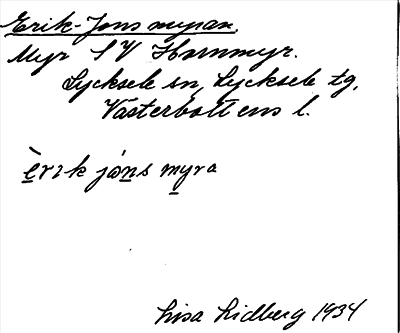 Erik-Jons myran.
Myr S V Hornmyr.
Lycksele sn, Lycksele tg,
Västerbottens l.
èrik jóns myra
Lisa Lidberg 1934